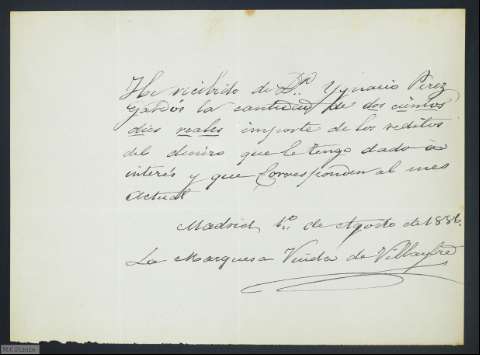 He recibido de Dn. Ygnacio Perez
Galdós la cantidad de dos cientos
diez reales importe de los reditos
del dinero que le tengo dado a
interés y que Corresponden al mes
actual
Madrid, 1o. de Agosto de 1881.
La Marquesa Viuda de